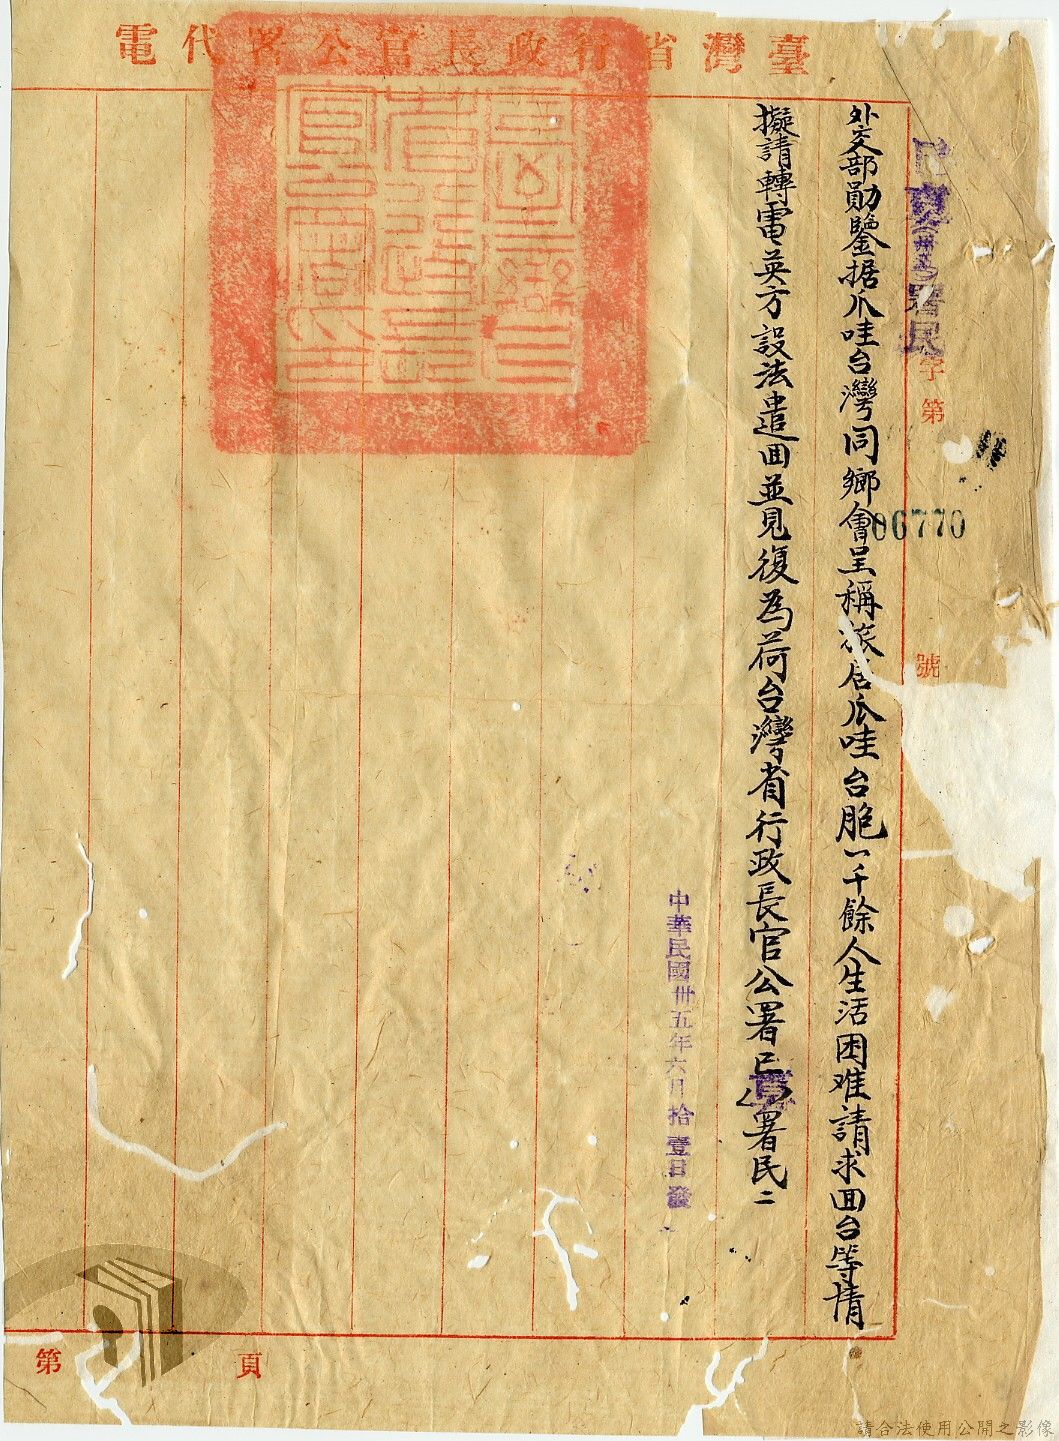 臺灣省行政長官公署代電
字第06770號
署民
外交部勛鑒据爪哇台灣同鄉會呈稱旅居爪哇台胞一千餘人生活困难請求囬台等情
擬請轉電英方設法遣囬並見復為荷台灣省行政長官公署巳署民二
中華民國卅五年六月拾壹日發
第 頁
請合法使用公開之影像